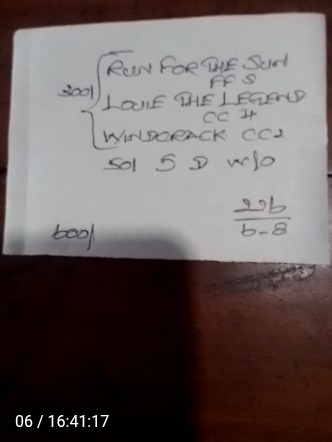 300/ RUN FOR THE SUN
FF S
LOUIE THE LEGEND
CC 4
WINDCRACK CC2
50/ 5 D W/O
22b
600/ 6-8
06 / 16:41:17